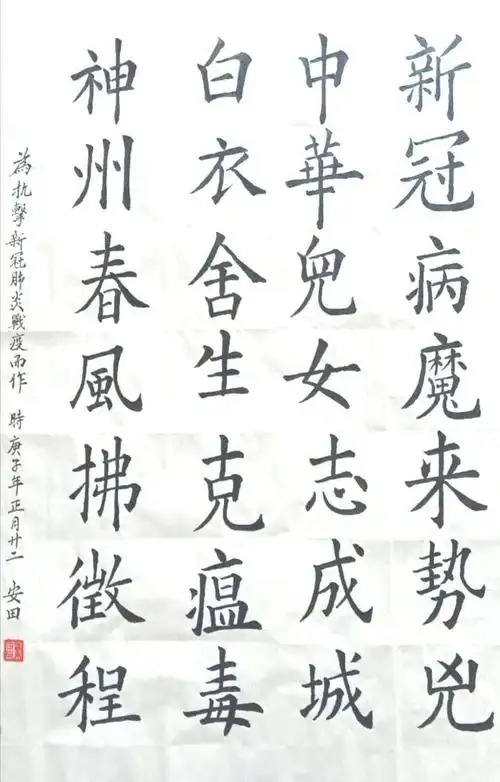 新冠病魔来势兇
中華兒女志成城
白衣舍生克瘟毒
神州春風拂徵程
為抗擊新冠肺炎戰疫而作 時庚子年正月廿二 安田